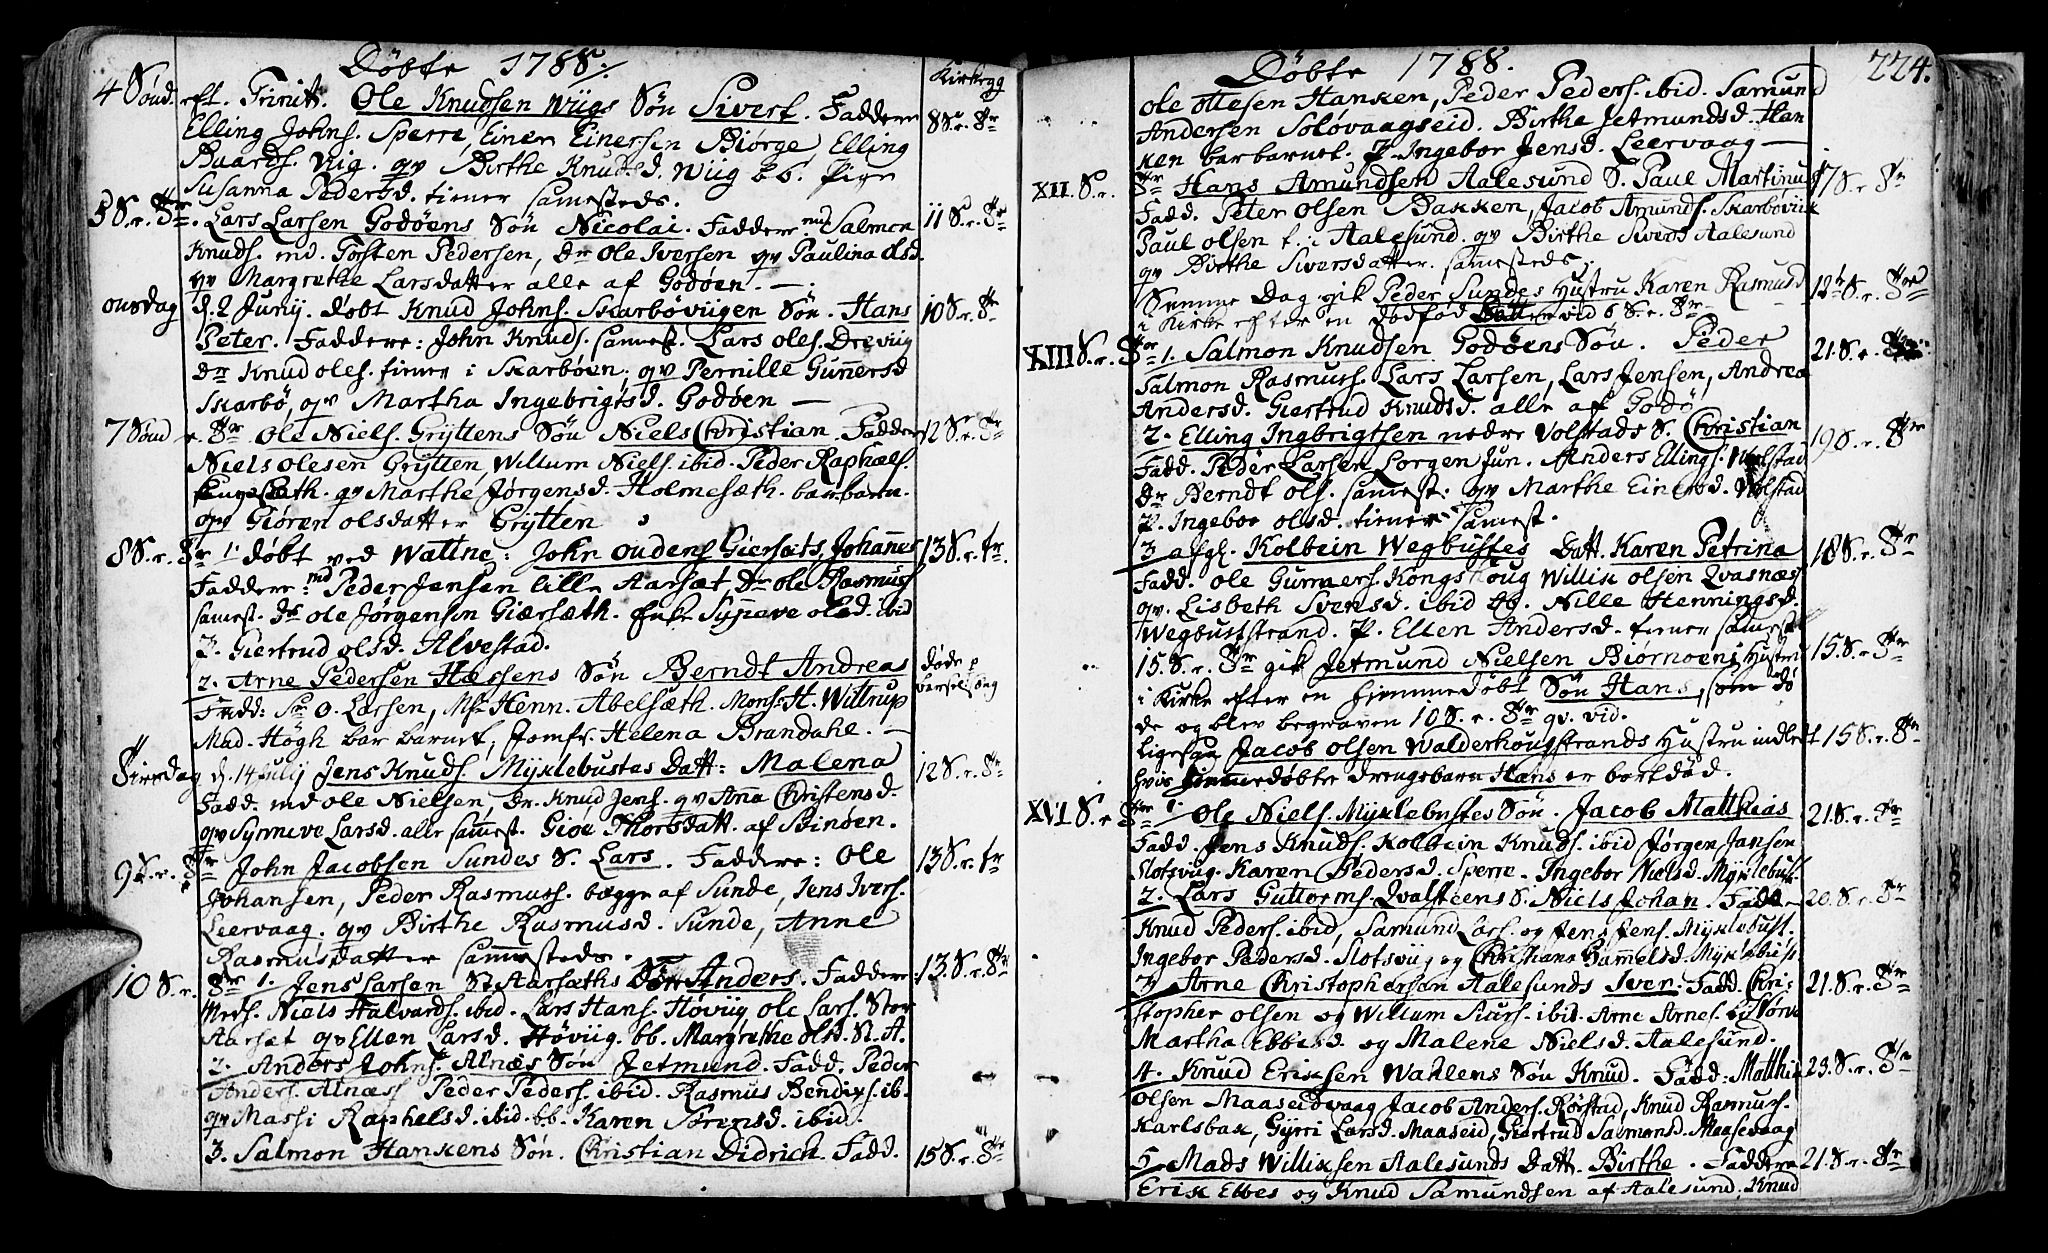 Döbte 1788:
Kirkegg
4 Sönd. eft. Trinit. Ole Knudsen Wiigs Sön Sivert. Faddere 8 S. r. Tr
Elling Johns. Sperre, Einer Einersen Biörge, Elling
Baards. Vig. qv Birthe Knudsd. Wiig bb. Pige
Susanna Pedersd. tiener samesteds.
5 S. r. Tr. Lars Larsen Godöens Sön Nicolai. Faddere md Salmon 11 S. r. Tr
Knuds. md Torsten Pedersen, Dr Ole Iversen qv Paulina Olsd.
qv Margrethe Larsdatter alle af Godöen.
onsdag d. 2 July. döbt Knud Johns. Skarbövigen Sön. Hans 10 S. r. Tr
Peter. Faddere: John Knuds. samest. Lars Oles. Drevig
Dr Knud Oles. tiener i Skarböen. qv Pernille Gunnersd
Skarbö, qv Martha Ingebrigtsd. Godöen
7 Sönd r. Tr Ole Niels. Gryttens Sön Niels Christian. Faddere 12 S. r. Tr
Niels Olesen Grytten, Willum Niels. ibid. Peder Raphaels.
qv Marthe Jörgensd. Holmesæth. bar barn.
qv Giören Olsdatter Grytten
8 S. r. Tr 1. döbt ved Wattne: John Oudens Giersæts Johannes 13 S. r. Tr.
Faddere: md Peder Jensen lille Aarsæt, Dr Ole Rasmuss
samest. Dr Ole Jörgensen Giærsæth. Enke Synnave Olsd. ibid
P. Giertrud Olsd. Alvestad.
2. Arne Pedersen Hæssens Sön Berndt Andreas döde i
Fadd: Sr O. Larsen, Mr Henn. Abelsæth. Mons. H. Willrup barselseng
Mad. Högh bar barnet, Jomfr. Helena Brandahl.
Tirsdag d. 14 July Jens Knuds. Myklebustes Datt: Malena 12 S. r. Tr
Fadd. md Ole Nielsen, Dr. Knud Jens. qv Anna Christensd.
qv Synneve Larsd. alle samest. Giöe Thorsdatt. af Stinöen.
9 S. r. Tr John Jacobsen Sundes S. Lars. Faddere: Ole 13 S. r. Tr
Johansen, Peder Rasmuss. begge af Sunde, Jens Ivers.
Leervaag. qv Birthe Rasmusd. Sunde, Anne
Rasmusdatter samesteds.
10 S. r. Tr 1. Jens Larsen St Aarsæths Sön Anders. Faddere 13. S. r. Tr
Mrds. Niels Halvards. ibid. Lars Hans. Höviig Ole Lars. Stor
Aarsæt qv Ellen Larsd. Höviig. bb. Margrethe Olsd. St. A.
2. Anders Johns. Alnæs Sön Jetmund. Fadd. Peder
Anders. Alnæss Peder Peders. ibid. Rasmus Bendixs. ib.
qv Massi Raphelsd. ibid. bb. Karen Sörensd. ibid.
3. Salmon Hankens Sön. Christian Didrich. Fadd. 15 S. r. Tr
Döbte 1788.
224.
Ole Ottesen Hanken, Peder Peders. ibid. Samund
Andersen Solövaagseid. Birthe Jetmundsd. Han
ken bar barnet. P. Ingebor Jensd. Leervaag
XII. S. r. Tr Hans Amundsen Aalesund S. Paul Martinus 17 S. r. Tr
Fadd. Peter Olsen Bakken, Jacob Amunds. Skarboviik
Paul Olsen t. i Aalesund. qv Birthe Sivers Aalesund
qv Birthe Siversdatter. samesteds.
Samme Dag gik Peder Sundes Hustru Karen Rasmusd 12 S. r. Tr
i Kirke efter en dödföd Datter vid 6 S. r. Tr
XIII S. r. Tr 1. Salmon Knudsen Godöens Sön. Peder 21. S. r. Tr
Salmon Rasmuss. Lars Larsen, Lars Jensen, Andrea
Andersd. Giertrud Knudsd. alle af Godö
2. Elling Ingbrigtsen nedre Volstads S. Christian 19 S. r. Tr
Fadd. Peder Larsen Lorgen Jun. Anders Ellings. Wolstad
Dr Berndt Ols. samest. qv Marthe Einersd. Volstad
P. Ingebor Olsd. tiener samest.
3 afgl. Kolbein Wegbustes Datt. Karen Petrina 18 S. r. Tr
Fadd. Ole Gunners. Kongshoug Willik Olsen Qvasnæss
qv. Lisbeth Svensd. ibid bb. Nille Henningsd.
Wegbuststrand. P. Ellen Andersd. tiener samest.
15. S. r. Tr gik Jetmund Nielsen Biörnoens Hustru 15. S. r. Tr
i Kirke efter en hjemmedöbt Sön Hans, som dö
de og blev begraven 10 S. r. Tr qv. vid.
Ligesaa Jacob Olsen Walderhougstrands Hustru indledt 15 S. r. Tr
hvis hjemmedöbte drengebarn Hans er bortdöd.
XVI. S. r Tr 1. Ole Niels. Myklebustes Sön. Jacob Matthias 21. S. r. Tr
Fadd. Jens Knuds. Kolbein Knuds. ibid Jörgen Jansen
Slotsvig. Karen Pedersd. Sperre. Ingebor Nielsd. Myklebust.
2. Lars Guttorms. Qvalsteens S. Niels Johan. Fadd. 20. S. r. Tr
Knud Peders. ibid, Samund Lars. og Jens Jens. Myklebust.
Ingebor Pedersd. Slotsvig og Christiane Gammelsd. Myklebust
3. Arne Christophersen Aalesunds Iver. Fadd. Chri- 21. S. r. Tr
stopher Olsen og Willum Siurs. ibid. Arne Arnes.
Martha Ebbesd. og Malene Nielsd. Aalesund.
4. Knud Eriksen Wahlens Sön Knud. Fadd: Matthis 23. S. r. Tr
Olsen Maaseidvaag Jacob Anders. Rörstad, Knud Rasmuss.
Karlsbak, Gyrri Larsd. Maaseid, Giertrud Salmonsd. Maasevaag
5. Mads Williksen Aalesunds Datt. Birthe. Faddere 21. S. r. Tr
Erik Ebbes og Knud Samundsen af Aalesund, Knud